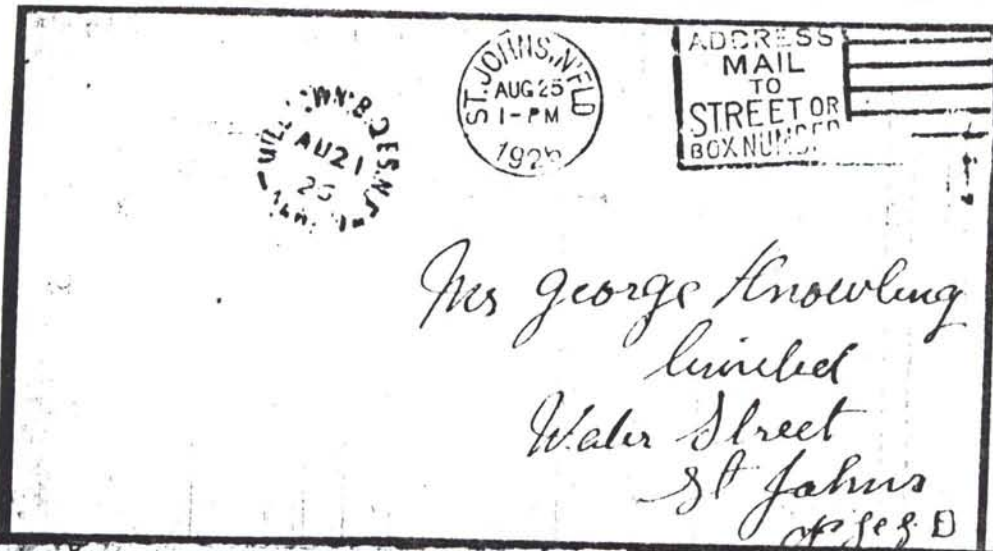 ST. JOHNS, N'FLD
AUG 25
1-PM
192
ADDRESS
MAIL
TO
STREET OR
BOX NUMBER
AU 21
25
Mr George Knowling
limited
Water Street
St Johns